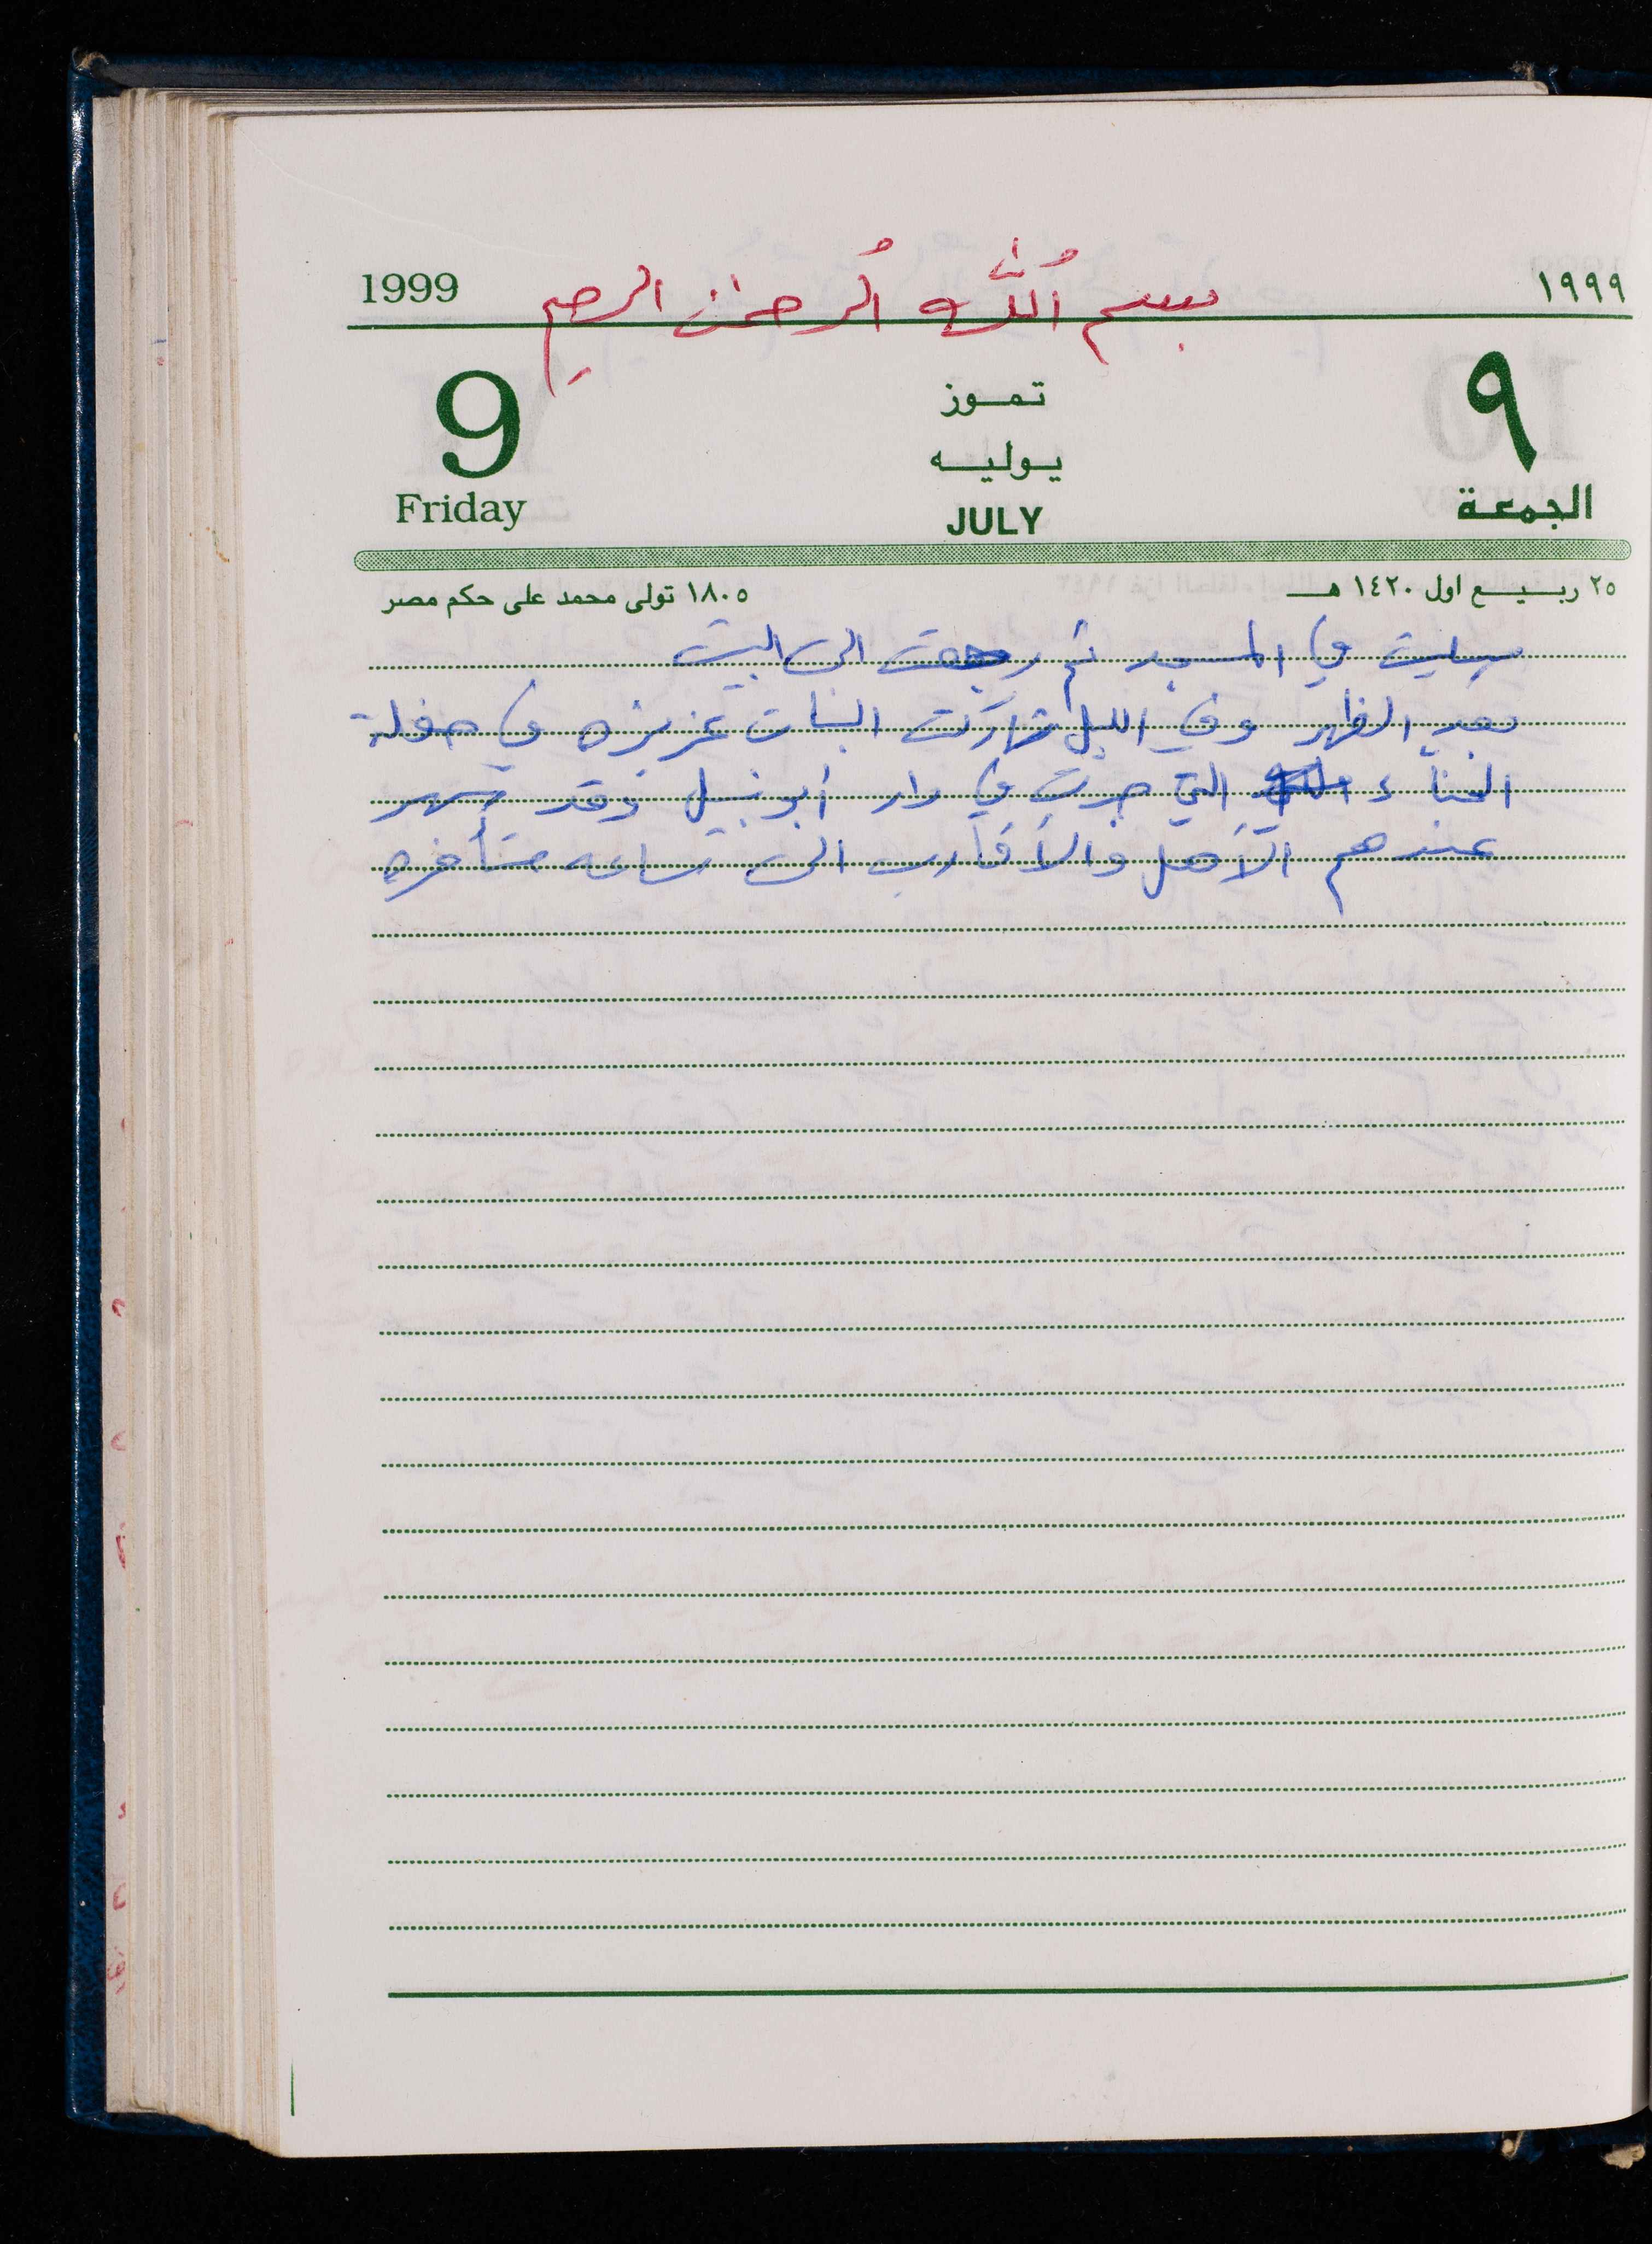 1999 بسم الله الرحمٰن الرحيم ١٩٩٩
9 تموز ٩
يوليه
Friday JULY الجمعة
٢٥ ربيع اول ١٤٢٠ هـ ١٨٠٥ تولى محمد على حكم مصر
صليت في المسجد ثم رجعت الى البيت
بعد الظهر وفي الليل شاركت البنات عزيزه في حفلة
الحناء التي جرت في دار أبو نبيل وقد سهر
عندهم الأهل والأقارب الى ساعه متأخره